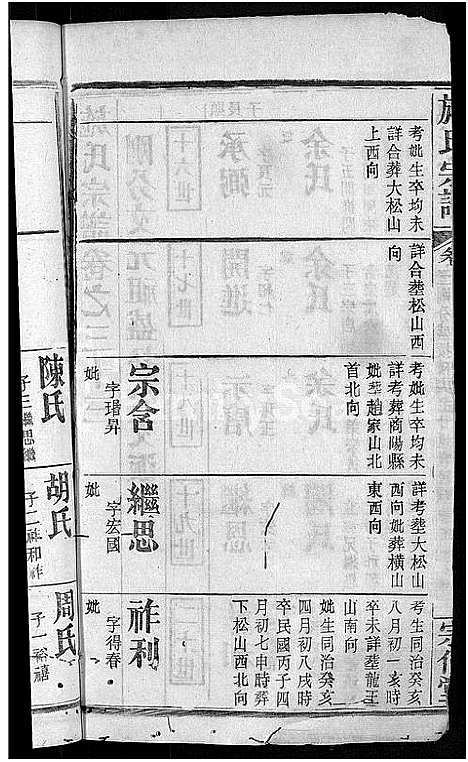 施氏宗譜
考妣生卒均未
詳合葬大松山
上西向
詳合塟松山西
向
考妣生卒均未
詳考葬商陽縣
妣塟趙家山北
首北向
詳考塟大松山
西向妣葬橫山
東西向
考生同治癸亥
八月初一亥時
卒未詳塟龍王
山南向
妣生同治癸亥
四月初八戌時
卒民國丙子四
月初七申時葬
下松山西北向
宗舍
字瑨昇
妣
繼思
字宏國
妣
祚利
字得春
妣
陳氏
子三繼思繼
胡氏
子二祚和祚
周氏
子一裕禧